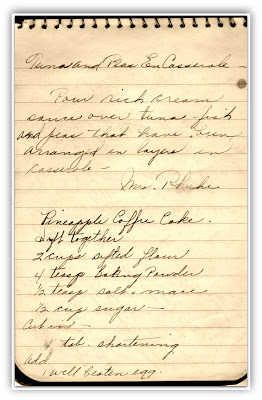 Tuna and Peas En Casserole —
Pour rich cream
sauce over tuna fish
and peas that have been
arranged in layers in
casserole —
Mrs.
Pineapple Coffee Cake.
Sift together
2 cups sifted flour
4 teasp Baking Powder
1/2 teasp salt & mace
1/2 cup sugar —
Cut in —
4 tab. shortening
add
1 well beaten egg.